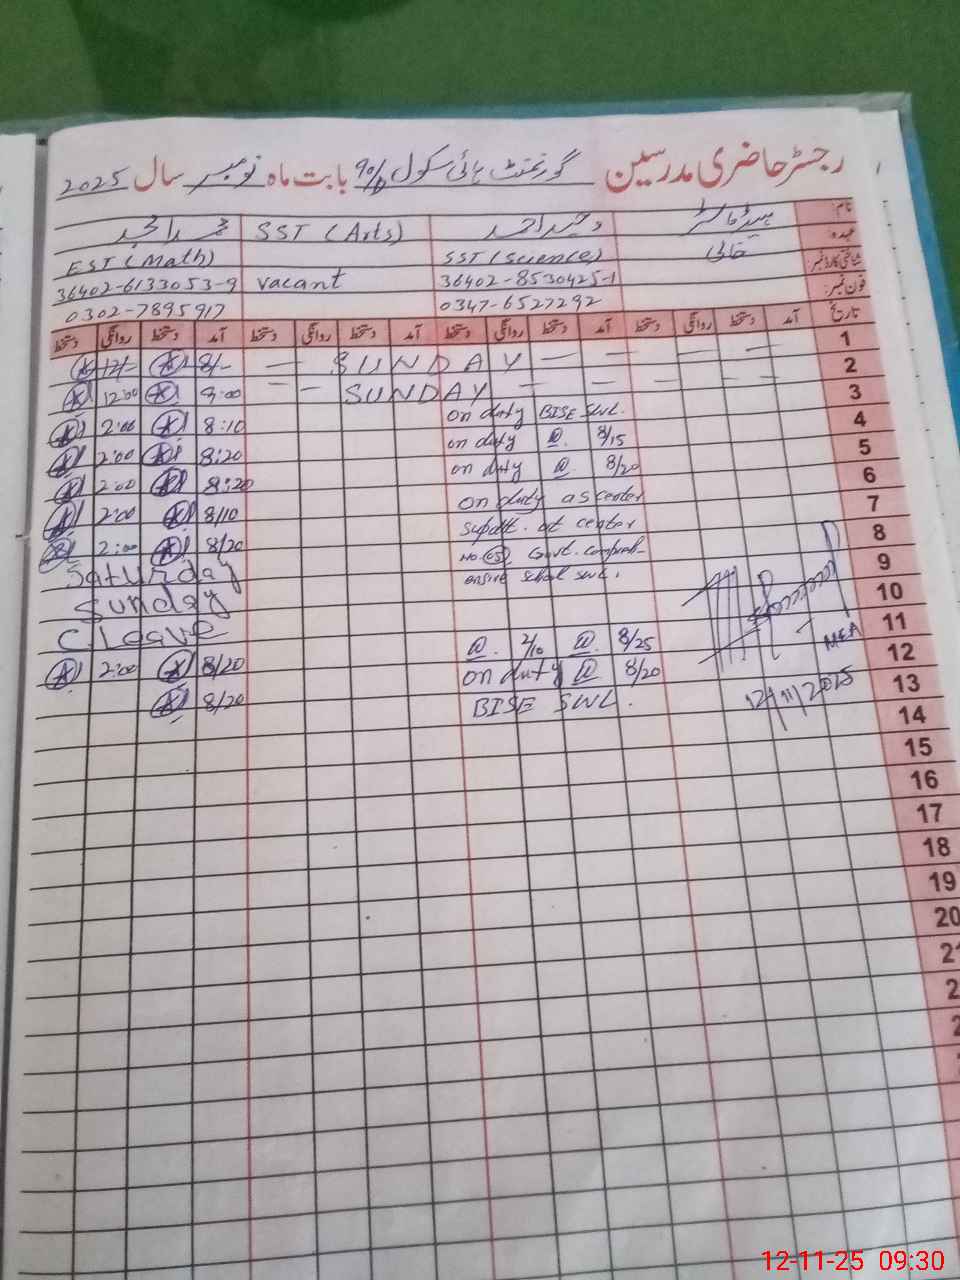 رجسٹر حاضری مدرسین گورنمنٹ ہائی سکول 90/ بابت ماہ نومبر سال 2025
نام: ہیڈ ماسٹر وحید احمد SST (Arts) محمد امجد
عہدہ خالی SST (Science) EST (Math)
شناختی کارڈ نمبر: 36402-8530425-1 vacant 36402-6133053-9
فون نمبر: 0347-6527292 0302-7895917
تاریخ آمد دستخط روانگی دستخط آمد دستخط روانگی دستخط آمد دستخط روانگی دستخط آمد دستخط روانگی دستخط
1 — SUNDAY — — — — 12/- 8/-
2 — — SUNDAY — — — — 12:00 8:00
3 on duty BISE SWL. 2:00 8:10
4 on duty @. 8/15 2:00 8:20
5 on duty @ 8/20 2:00 8:20
6 on duty as center 2:00 8/10
7 supdtt. at center 2:00 8/20
8 No. (05) Govt. compreh- Saturday
9 ensive school swl. Sunday
10 C. Leave
11 @. 2/10 @. 8/25 2:00 8/20
12 on duty @ 8/20 8/20
13 BISE SWL.
MEA
12/11/2025
14
15
16
17
18
19
20
12-11-25 09:30